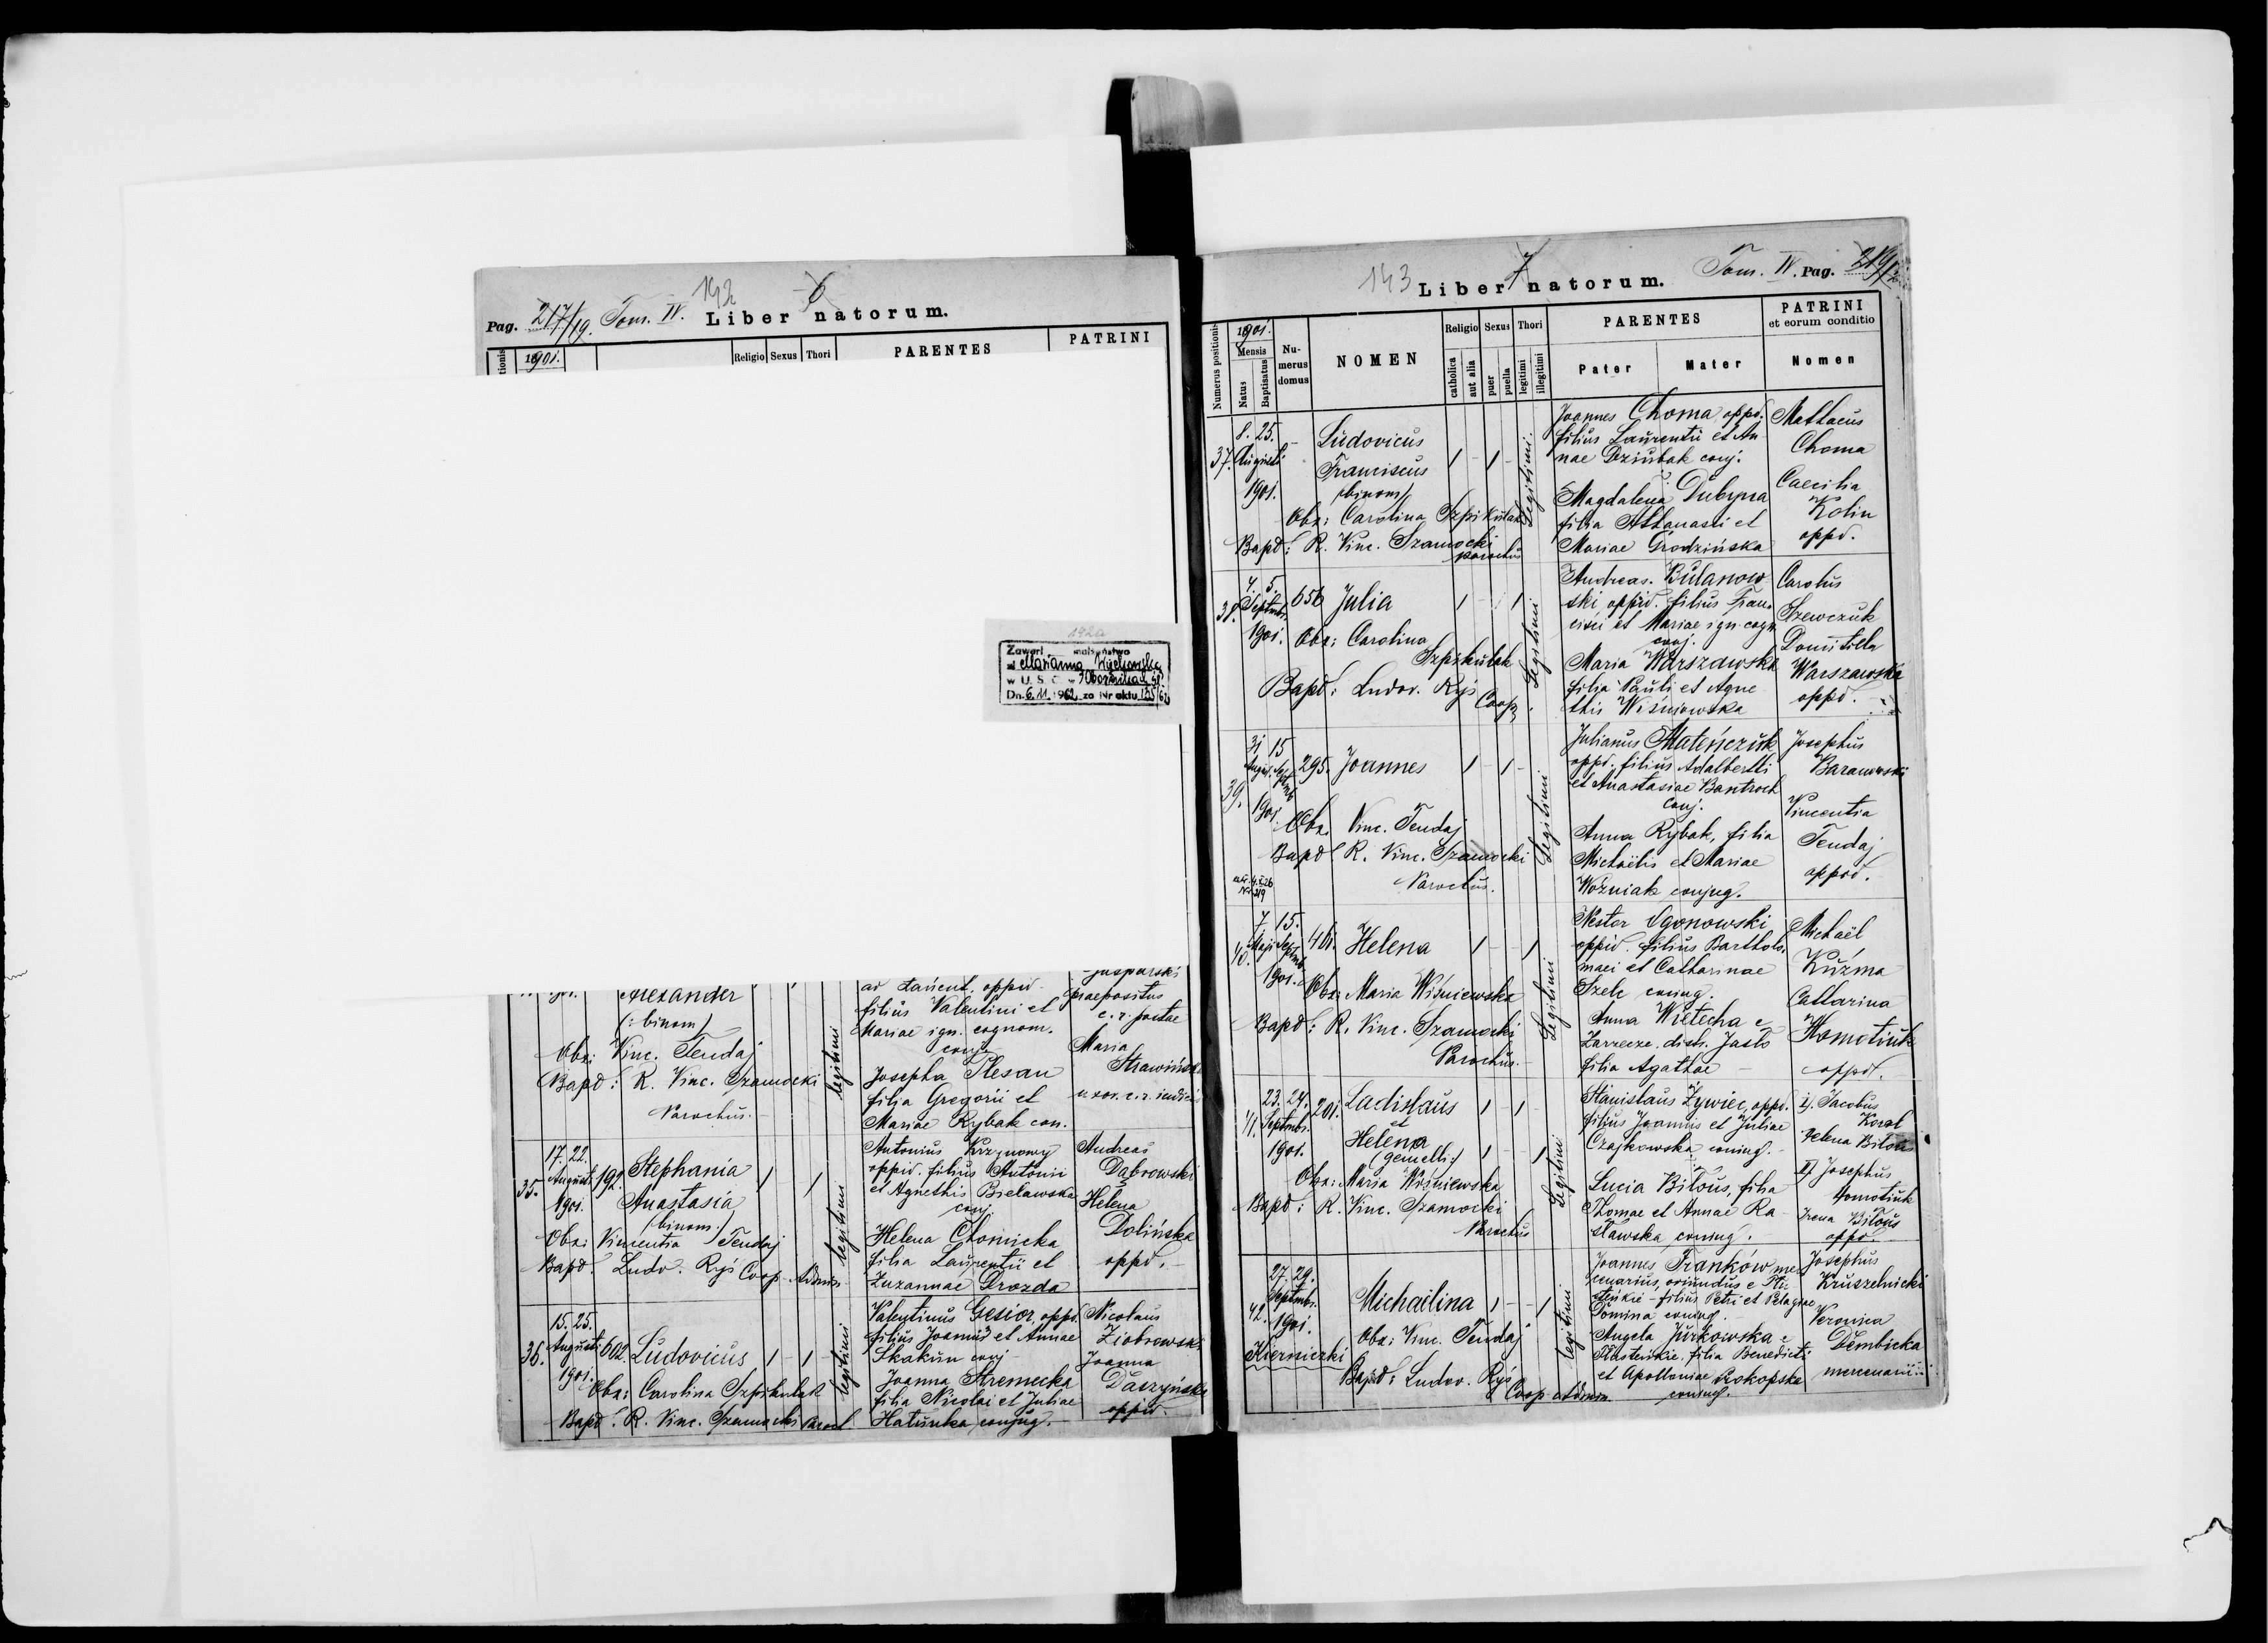 Pag. 217/19. Tom. IV.
142
6
Liber natorum.
1901.
Religio Sexus Thori
PARENTES
PATRINI
142a
Zawarł małżeństwo
z Marianna
w U. S. C. w
Dn. 6.11.1962 za Nr aktu
Alexander
(: binom)
Obx: Vinc. Tendaj
Bapd: R. Vinc. Szamocki
Parochus.
legitimi
oppid.
filius Valentini et
Mariae ign. cognom.
conj.
Josepha Plesan
filia Gregorii et
Mariae Rybak con.
praepositus
Maria
35.
17. 22.
Augusti
1901.
192.
Stephania
Anastasia
(binom:)
Obx: Vincentia Tendaj
Bapd. Ludv. Ryś Coop. Admin.
1
1
legitimi
Antonius Krzynowy
oppid. filius Antonii
et Agnethis Bielawska
conj.
Helena Chomicka
filia Laurentii et
Zuzannae Drozda
Andreas
Dąbrowski
Helena
Dolińska
oppd.
36.
15. 25.
Augusti
1901.
602.
Ludovicus
1 - 1 -
Obx: Carolina Szpikulak
Bapd. R. Vinc. Szamocki Paroch.
legitimi
Valentinus Gesior, oppd.
filius Joannis et Annae
Skakun conj
Joanna Stremecka
filia Nicolai et Juliae
Hatunka conjug.
Nicolaus
Joanna
Daszyńska
oppid.
143
7
Liber natorum.
Tom. IV. Pag. 219/
Numerus positionis
1901.
Mensis
Natus
Baptisatus
Numerus domus
NOMEN
Religio
catholica
aut alia
Sexus
puer
puella
Thori
legitimi
illegitimi
PARENTES
Pater
Mater
PATRINI
et eorum conditio
Nomen
37.
8. 25.
Augusti
1901.
Ludovicus
Franciscus
(binom)
Obx: Carolina Szpikulak
Bapd: R. Vinc. Szamocki
parochus
1 - 1 -
Legitimi.
Joannes Choma, oppd.
filius Laurentii et An-
nae Dziubak conj.
Magdalena Dubyna
filia Athanasii et
Mariae Grodzińska
Mathaeus
Choma
Caecilia
Kolin
oppd.
38.
4. 5.
Septmbr.
1901.
656
Julia
Obx: Carolina
Szpikulak
Bapd: Ludov. Ryś
Coop.
1 - 1
Legitimi
Andreas Bulanow-
ski oppid. filius Fran-
cisci et Mariae ign. cogn
conj.
Maria Warszawska
filia Pauli et Agne-
this Wiśniowska
Carolus
Szewczuk
Domitilla
Warszawska
oppd.
39.
31 15
August. Septmb
1901.
295.
Joannes
1 - 1 -
Obx. Vinc. Tendaj
Bapd R. Vinc. Szamocki
Parochus.
Legitimi
Julianus Mateńczuk
oppd. filius Adalberti
et Anastasiae Bantroch
conj.
Anna Rybak, filia
Michaëlis et Mariae
Woźniak conjug.
Josephus
Baranowski
Vincentia
Tendaj
oppid.
40.
7 15.
Maji Septmb.
1901.
461.
Helena
1 - 1
Obx: Maria Wiśniewska
Bapd: R. Vinc. Szamocki
Parochus.
Legitimi
Nestor Ogonowski
oppid. filius Bartholo-
maei et Catharinae
Szelc coniug.
Anna Wietecha e
Zarzecze, distr. Jasło
filia Agathae
Michaël
Kuźma
Catharina
Homotiuk
oppd.
41.
23. 24.
Septmbr.
1901.
201.
Ladislaus
et
Helena
(gemelli:)
1 - 1 -
1 - 1
Obx: Maria Wiśniewska
Bapd: R. Vinc. Szamocki
Parochus
Legitimi
Stanislaus Żywiec, oppd.
filius Joannis et Juliae
Czajkowska, coniug.
Lucia Biłous, filia
Thomae et Annae Ra-
sławska coniug.
I). Jacobus
Koral
Helena Biłous
II) Josephus
Homotiuk
Irena Biłous
oppd.
42.
27. 29.
Septmbr.
1901.
Kierniczki
Michaëlina
1 - - 1
Obx: Vinc. Tendaj
Bapd: Ludov. Ryś
Coop. Admin.
legitimi
Joannes Franków mer-
cenarius, oriundus e
filius Petri et Pelagiae
Tomina coniug.
Angela Jurkowska e
filia Benedicti
et Apolloniae Prokopska
coniug.
Josephus
Kruszelnicki
Veronica
Dembicka
mercenarii